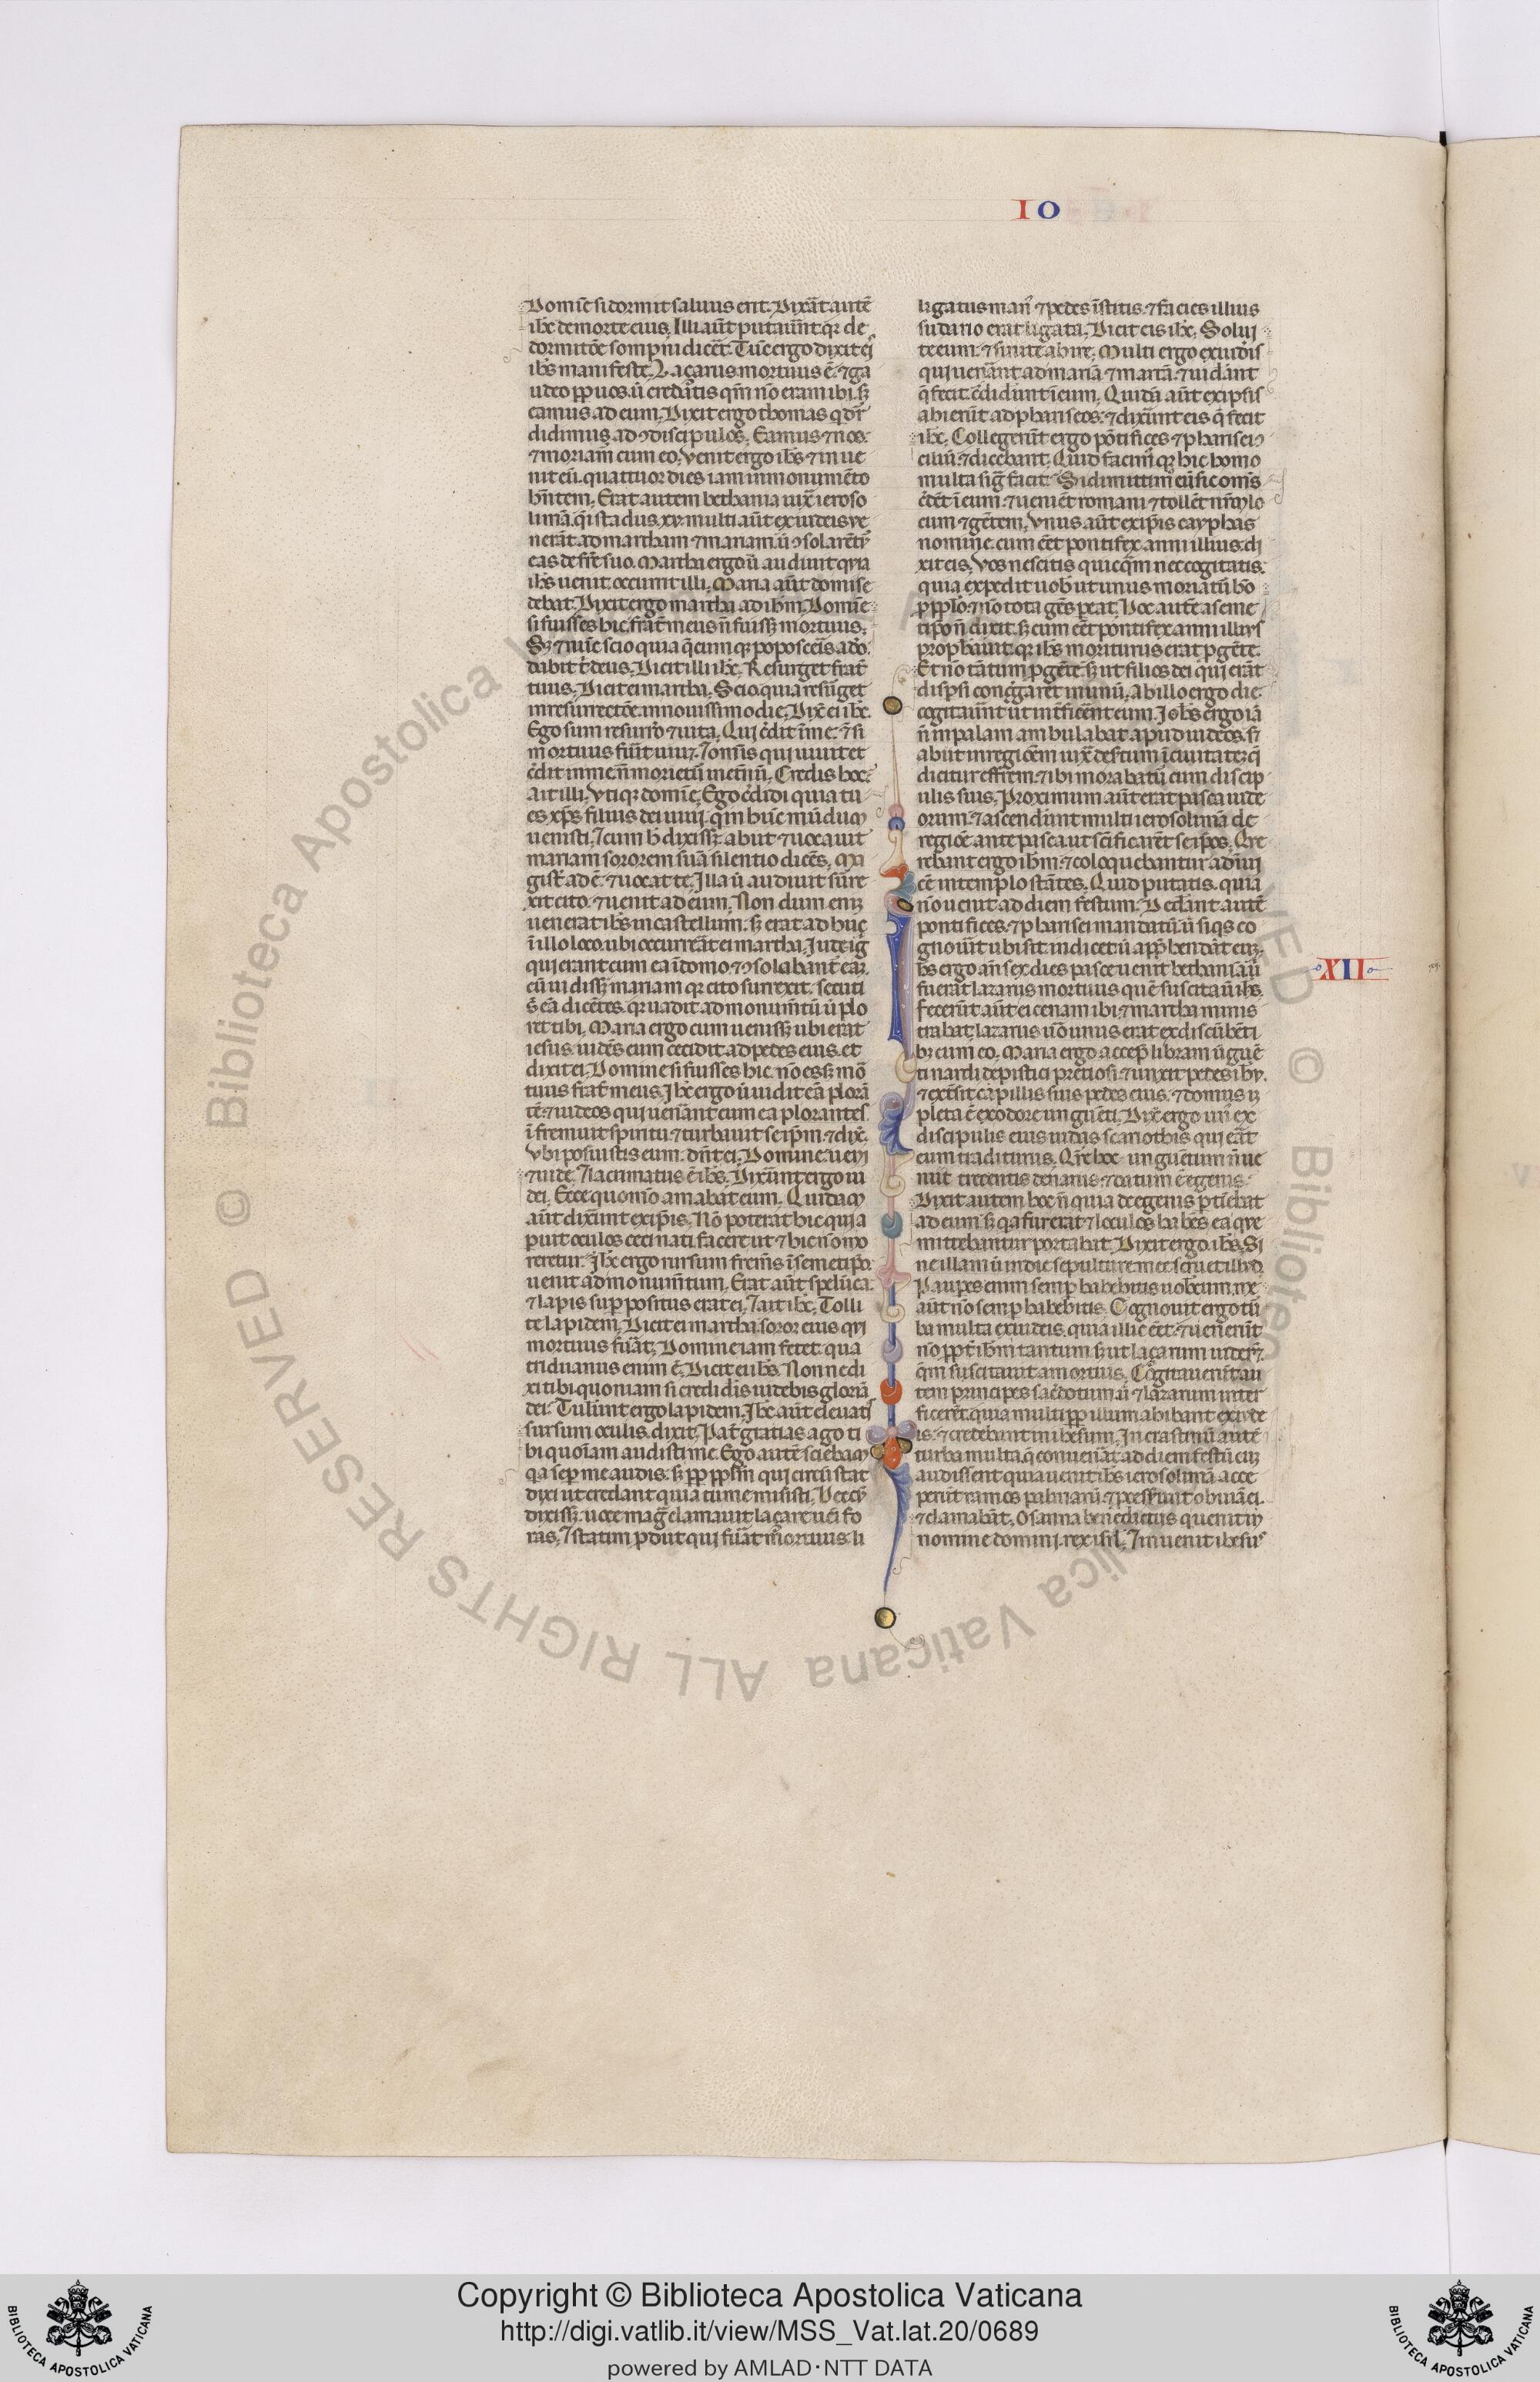 IO
Domīe si dormit saluus erit. Dixāt autē
ihc de morte eius. Illi aūt putauūt qr de
dormitōe sompni dicēt. Tūc ergo dixit eis
ihs manifeste. Laçarus mortuus ē. ⁊ ga
udeo ꝓp uos. ū credatis qm̄ nō eram ibi. sꝫ
eamus ad eum. Dixit ergo thomas q dr̄
didimus ad ꝯdiscipulos. Eamus ⁊ nos.
⁊ moriam̄ cum eo. Venit ergo ihs ⁊ inue
nit eū. quattuor dies iam in monumēto
hn̄tem. Erat autem bethania iux̄ ieroso
limā. q̄i stadus xv. multi aūt ex iudeis ue
nerāt ad martham ⁊ mariam. ū ꝯsolarētr
eas de fr̄e suo. Martha ergo ū audiuit qria
ihs uenit. occurrit illi. Maria aūt domi se
debat. Dixit ergo martha ad ihm. Domīe
si fuisses hic. frat̄ meus n̄ fuissꝫ mortuus.
Sꝫ ⁊ nūc scio quia q̄cumqꝫ poposceris a do.
dabit t̄ deus. Dicit illi ihc. Resurget frat̄
tuus. Dicit ei martha. Scio quia resurget
in resurrectōe in nouissimo die. Dix̄ ei ihc.
Ego sum resurr̄o ⁊ uita. Qui c̄dit ī me. ⁊ si
mortuus fuit uiuꝫ. ⁊ omīs qui uiuit et
c̄dit in me n̄ morietur in et̄nū. Credis hoc.
Ait illi. Vtiqꝫ domīe. Ego c̄didi quia tu
es xp̄s filius dei uiui. qui in hūc mūdum
uenisti. ⁊ cum h̄ dixissꝫ abiit ⁊ uocauit
mariam sororem suā silentio dicēs. Ma
gist̄ ad ē. ⁊ uocat te. Illa ū audiuit surre
xit cito. ⁊ uenit ad eum. Non dum enim
uenerat ihs in castellum. sꝫ erat ad huc
ī illo loco. ubi occurr̄at ei martha. Iudei g̊
qui erant cum ea ī domo. ⁊ ꝯsolabant̄ eam.
cū uidissꝫ mariam qr cito surrexit. secuti
s̄ eā dicētes. qr uadit ad monum̄tū ū plo
ret ibi. Maria ergo cum uenissꝫ ubi erat
iesus. uidēs eum cecidit ad pedes eius. et
dixit ei. Domine si fuisses hic. nō essꝫ mō
tuus frat̄ meus. Ihc ergo ū uidit eā plorā
tē. ⁊ iudeos qui uenāt cum ea plorantes.
īfremuit spiritu. ⁊ turbauit seip̄m. ⁊ dix̄.
Vbi posuistis eum. dn̄t ei. Domine ueni
⁊ uide. ⁊ lacrimatus ē ihs. Dixūnt ergo iu
dei. Ecce quomō amabat eum. Quidam
aūt dixūnt ex ip̄is. Nō poterat hic qui a
puit oculos ceci nati. facere ut ⁊ hic nō mo
reretur. Ihc ergo rursum frem̄s ī semetip̄o.
uenit ad monum̄tum. Erat aūt spelūca.
⁊ lapis sup positus erat ei. ⁊ ait ihc. Tolli
te lapidem. Dicit ei martha. soror eius qui
mortuus fuāt. Domine iam fetet. qua
triduanus enim ē. Dicit ei ihs. Nonne di
xi tibi quoniam si credidis uidebis gloriā
dei. Tulūnt ergo lapidem. Ihc aūt eleuatis
sursum oculis dixit. Pat̄ gratias ago ti
bi quoīam audisti me. Ego autē sciebam
qa sep me audis. sꝫ ꝓp pp̄lm qui circū stat
dixi ut credant quia tu me misisti. Hec cū
dixissꝫ. uoce mag̊ clamauit. laçare ueī fo
ras. ⁊ statim ꝓdiit qui fuāt mortuus. li
ligatus man⁹ ⁊ pedes īstitis. ⁊ facies illius
sudario erat ligata. Dicit eis ihc. Solui
te eum. ⁊ sinite abire. Multi ergo ex iudis
qui uenāt ad mariā ⁊ martā. ⁊ uidānt
q̄ fecit. c̄didūnt ī eum. Quidā aūt ex ipsis
abierūt ad phariseos. ⁊ dixūnt eis q̄ fecit
ihc. Collegerūt ergo pōtifices ⁊ pharisei ꝯ
ciliū. ⁊ dicebant. Quid facim⁹ qr hic homo
multa sig̊ facit. Si dimittim⁹ eū sic om̄s
c̄dēt ī eum. ⁊ ueniēt romani ⁊ tollēt nr̄m lo
cum ⁊ gētem. Vnus aūt ex ip̄is cayphas
nomine. cum eēt pontifex anni illius. di
xit eis. Vos nescitis quicq̄m nec cogitatis.
quia expedit uob̄ ut unus moriatur hō
p pp̄lo. ⁊ nō tota gēs peat. Hoc autē a seme
tip̄o n̄ dixit. sꝫ cum eēt pontifex anni illius
prophauit. qr ihs moriturus erat p gēte.
Et nō tātum p gēte. sꝫ ut filios dei qui erāt
disp̄si cong̊garet in unū. Ab illo ergo die
cogitauūt ut int̄ficēnt eum. Ihs ergo iā
n̄ in palam ambulabat apud iudeos. sꝫ
abiit in regiōem iux̄ des̄tum ī ciuitatē q̄
dicitur effrem. ⁊ ibi morabatur cum discip
ulis suis. Proximum aūt erat pasca iude
orum. ⁊ ascendūnt multi ierosolimā de
regiōe ante pasca ut sc̄ificarēt seip̄os. Que
rebant ergo ihm. ⁊ coloquebantur ad inui
cē in templo stātes. Quid putatis. quia
nō uenit ad diem festum. Dedānt autē
pontifices. ⁊ pharisei mandatū. ū siqs co
gnouīt ubi sit. indicet. ū app̄hendāt eum.
XII
hs ergo an̄ sex dies pasce uenit bethaniā. ū
fuerat lazarus mortuus. quē suscitauit ihs.
fecerūt aūt ei cenam ibi. ⁊ martha minis
trabat. lazarus ūo unus erat ex discūbēti
bꝫ cum eo. Maria ergo accep̄ libram ūguē
ti nardi de pistici pretiosi. ⁊ unxit pedes ihu.
⁊ ext̄sit capillis suis pedes eius. ⁊ domus ī
pleta ē ex odore unguēti. Dix̄ ergo un⁹ ex
discipulis eius iudas scariothis qui eāt
eum traditurus. Qr̄e hoc unguētum n̄ ue
niit trecentis denariis. ⁊ datum ē egenis.
Dixit autem hoc n̄ quia de egenis p̄tinebat
ad eum. sꝫ qa fur erat. ⁊ loculos habēs. ea que
mittebantur portabat. Dixit ergo ihs. Si
ne illam ū in die sepulture mee seruet illud.
Paupes enim semp habebitis uobcum. me
aūt nō semp habebitis. Cognouit ergo tur
ba multa ex iudeis. quia illic eēt. ⁊ uenerūt
nō ꝓpt̄ ihm tantum. sꝫ ut laçarum uiderēt.
q̄m suscitauit a mortuis. Cogitauerūt au
tem principes sac̄dotum. ū ⁊ lazarum inter
ficerēt. quia multi ꝓp illum abibant ex iude
is. ⁊ credebant in ihesum. In crastinū autē
turba multa q̄ conuenāt ad diem festū cum
audissent quia uenit ihs ierosolimā. acce
perūt ramos palmarū. ⁊ processūnt obuiā ei.
⁊ clamabāt. Osanna benedictus qui uenit in
nomine domini. rex isrl. ⁊ inuenit ihesus
Copyright © Biblioteca Apostolica Vaticana
http://digi.vatlib.it/view/MSS_Vat.lat.20/0689
powered by AMLAD·NTT DATA
BIBLIOTECA APOSTOLICA VATICANA
BIBLIOTECA APOSTOLICA VATICANA
© Biblioteca Apostolica Vaticana ALL RIGHTS RESERVED